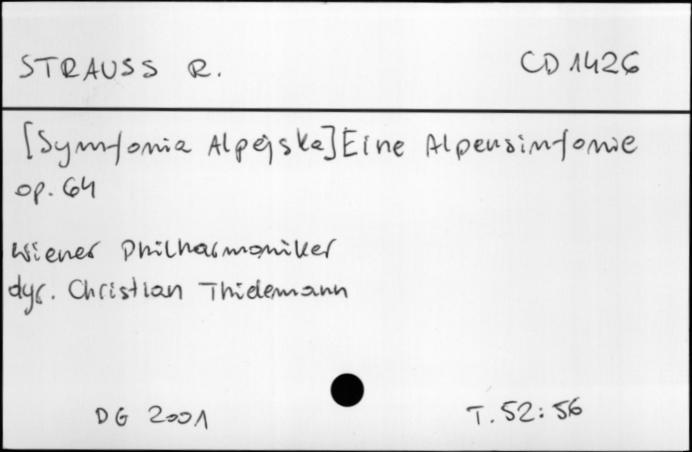 STRAUSS R. CD 1426
[Symfonia Alpejska] Eine Alpensinfonie
op. 64
Wiener Philharmoniker
dyr. Christian Thidemann
DG 2001 T. 52:56